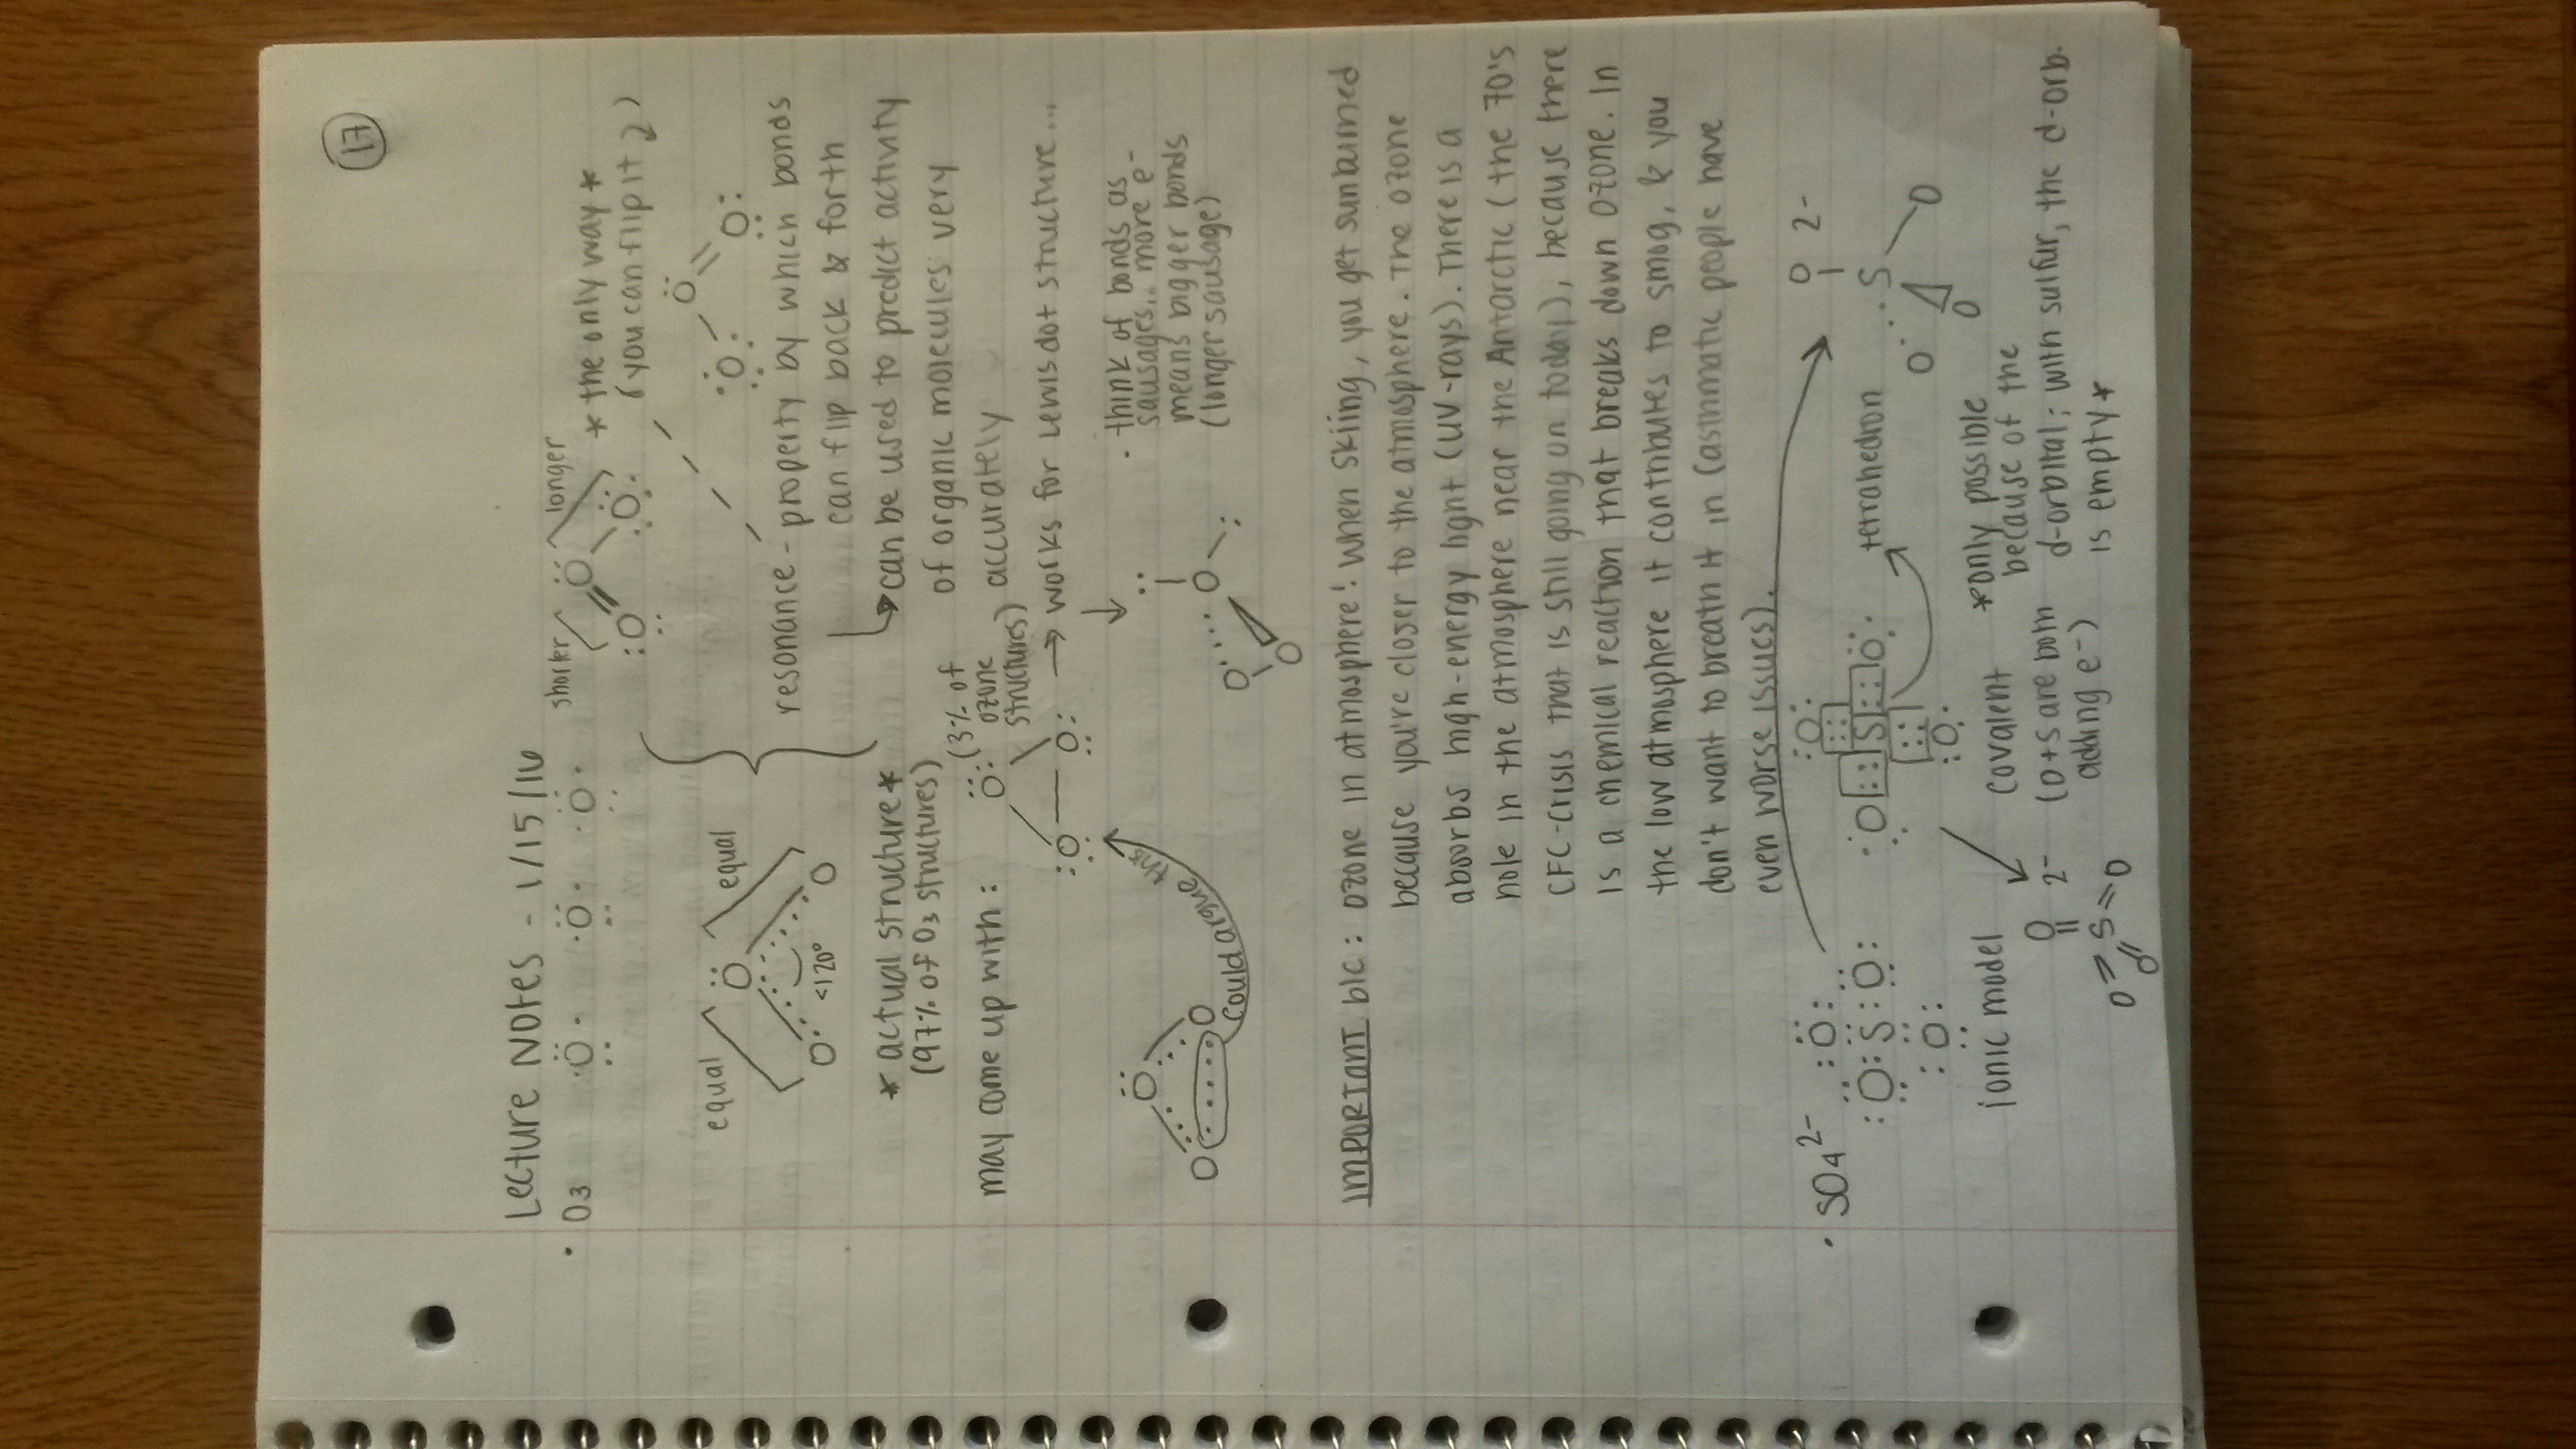 17
Lecture Notes - 1/15/16
· O3 ·Ö· ·Ö· ·Ö·
shorter longer
:O=Ö-Ö: *the only way*
(you can flip it ⤵)
equal equal
Ö
O O
<120°
:Ö-Ö=O:
*actual structure*
(97% of O3 structures)
resonance - property by which bonds
can flip back & forth
↳ can be used to predict activity
of organic molecules very
accurately
may come up with:
:Ö: (3% of
ozone
structures)
:O — O:
→ works for Lewis dot structure...
Ö
O O
could argue this
O O O
· think of bonds as
sausages... more e-
means bigger bonds
(longer sausage)
IMPORTANT b/c: ozone in atmosphere! when skiing, you get sunbained
because you're closer to the atmosphere. The ozone
absorbs high-energy light (UV-rays). There is a
hole in the atmosphere near the Antarctic (the 70's
CFC-crisis that is still going on today), because there
is a chemical reaction that breaks down ozone. In
the low atmosphere it contributes to smog, & you
don't want to breath it in (asthmatic people have
even worse issues).
· SO4 2-
:Ö:
:Ö:S:Ö:
:Ö:
:O:
:O::S::O:
:O:
tetrahedron
O 2-
S
O O O
ionic model
covalent
(O+S are both
adding e-)
*only possible
because of the
d-orbital; with sulfur, the d-orb.
is empty*
O 2-
O=S=O
O